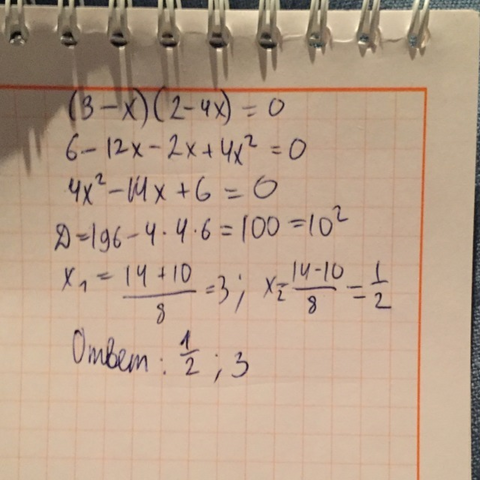 (3-x)(2-4x)=0
6-12x-2x+4x²=0
4x²-14x+6=0
D=196-4·4·6=100=10²
x₁=(14+10)/8=3; x₂=(14-10)/8=1/2
Ответ: 1/2; 3